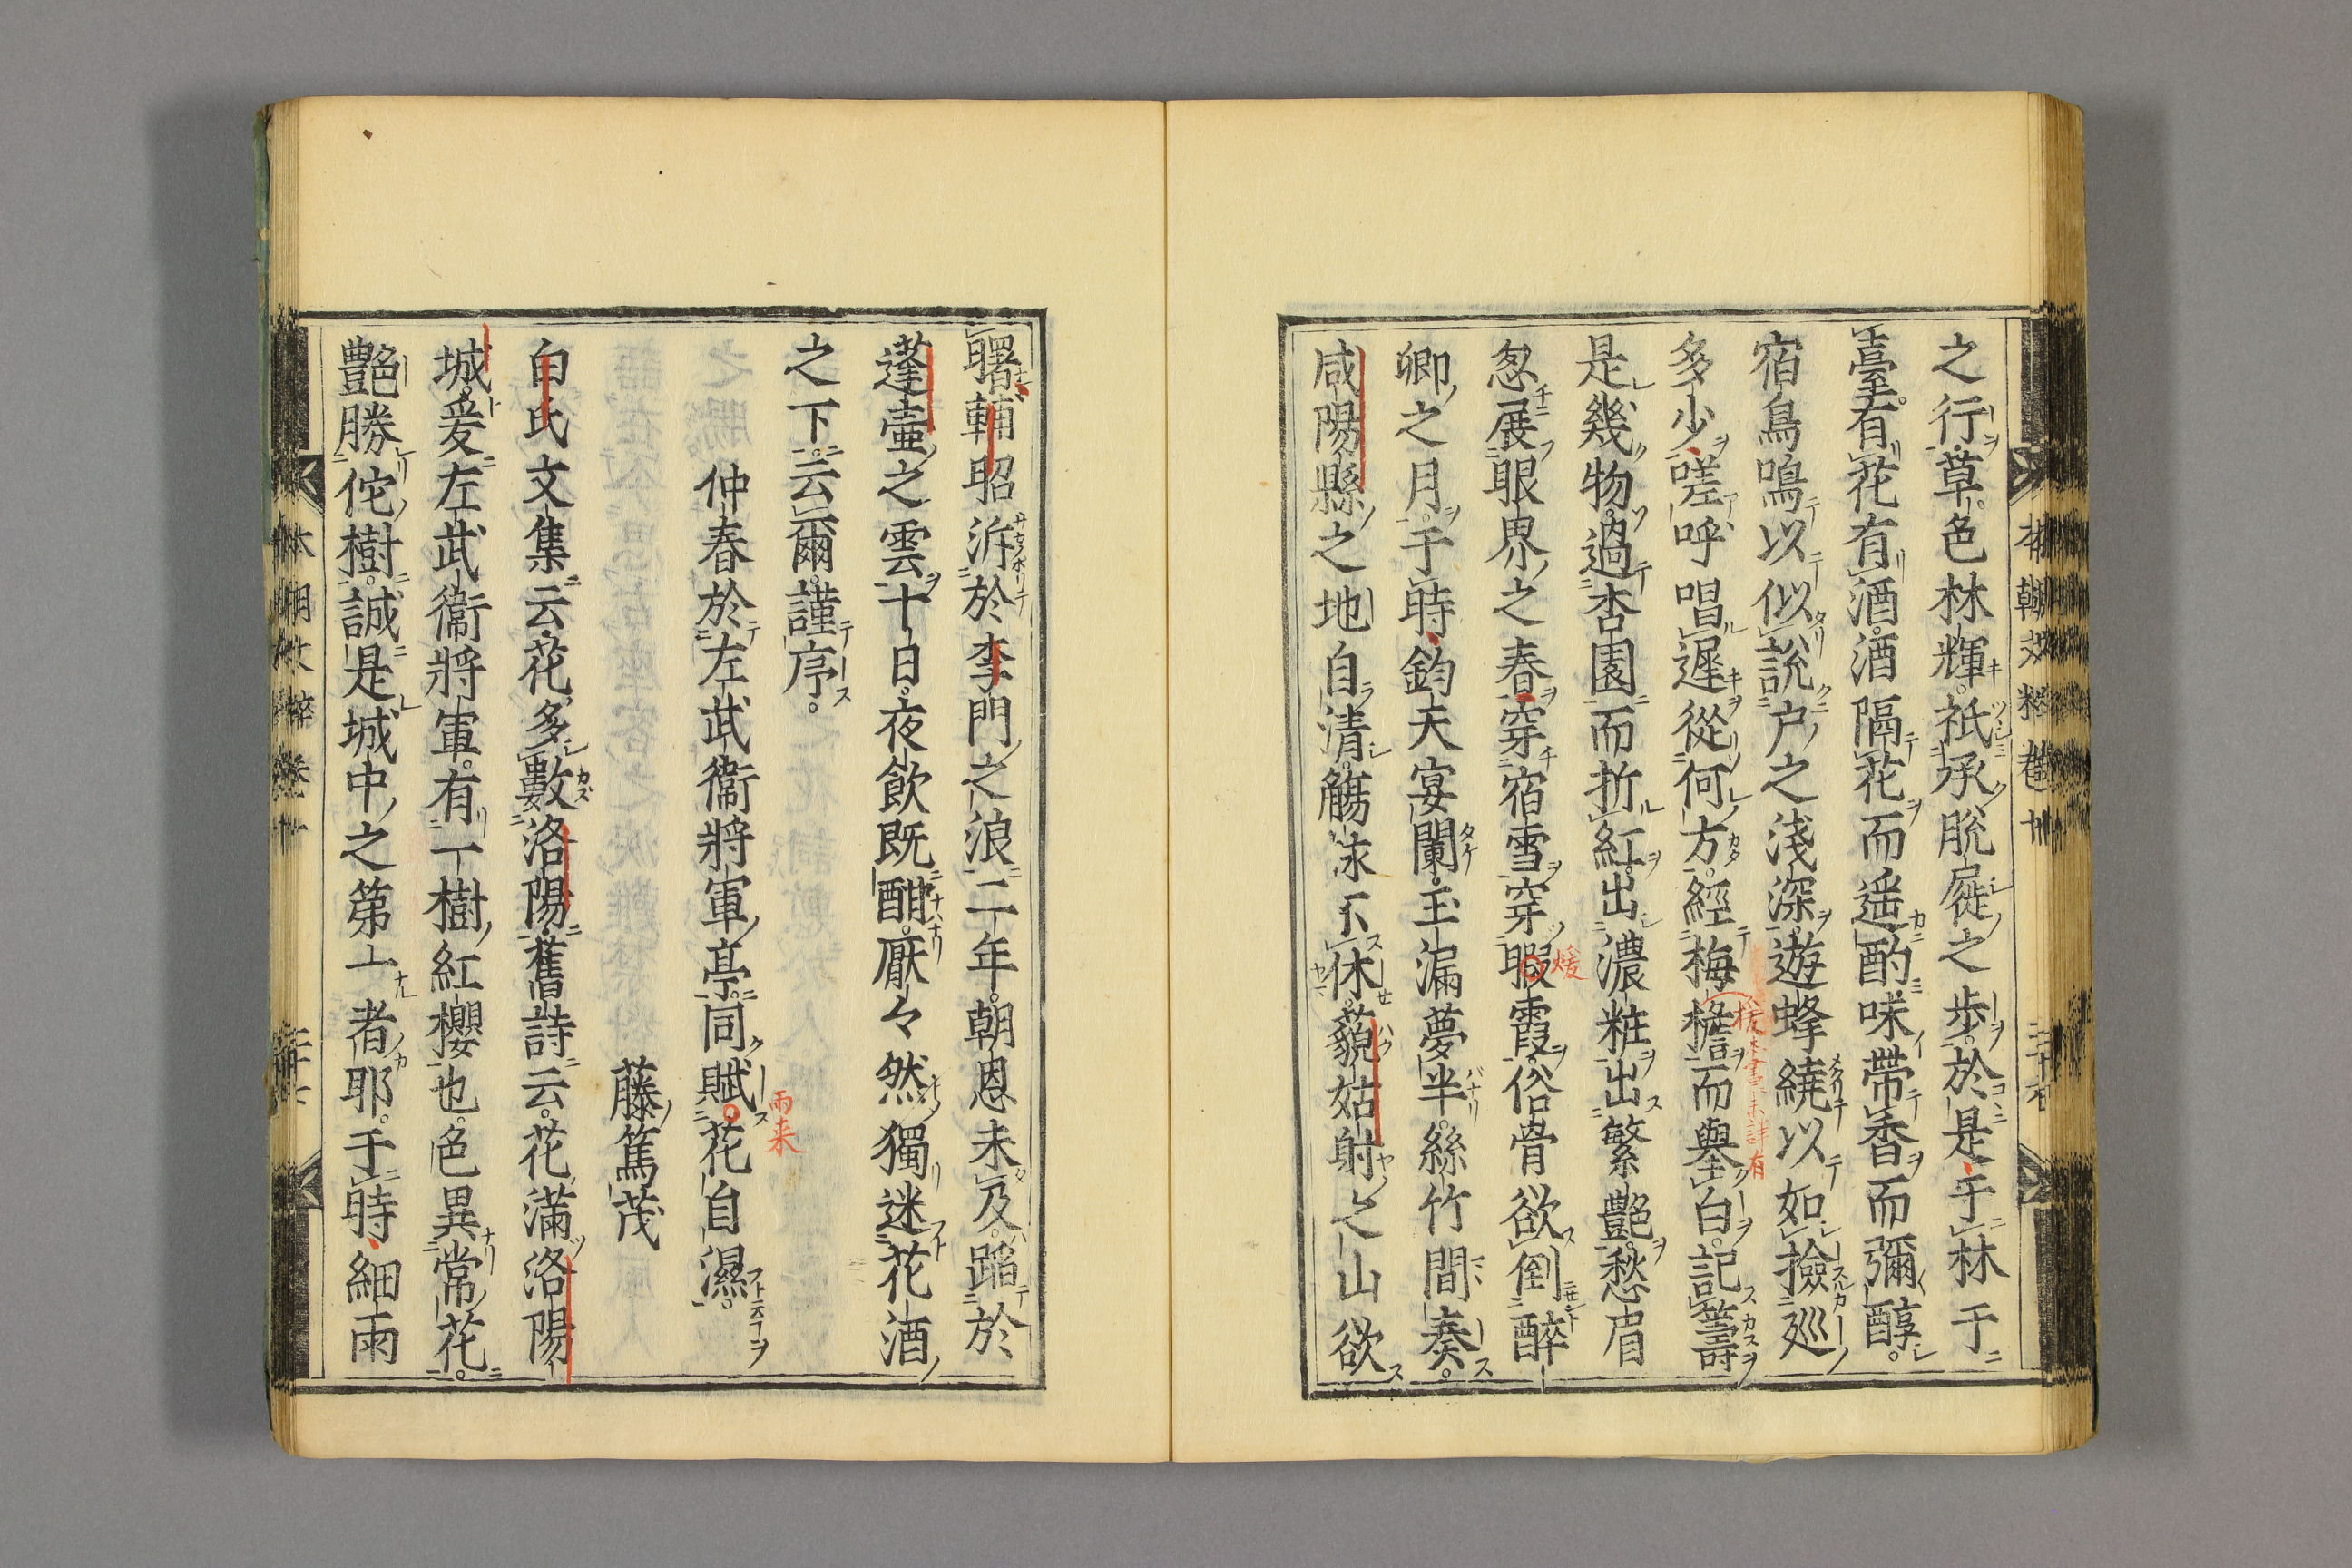 之行草色林輝祇承脱屣之歩於是于林于
臺有花有酒酒隔花而遥酌味帶香而彌醇
宿鳥鳴以似説户之淺深遊蜂繞以如撿廵
多少嗟呼唱遲從何方經梅檐而擧白記籌
是幾物過杏園而折紅出濃粧出繁艷愁眉
忽展眼界之春穿宿雪穿暇霞俗骨欲倒醉
卿之月于時鈞天宴闌玉漏夢半絲竹間奏
咸陽縣之地自清觴詠不休藐姑射之山欲
曙輔昭泝於李門之浪二年朝恩未及蹈於
蓬壷之雲十日夜飲既酣厭々然獨迷花酒
之下云爾謹序
仲春於左武衞將軍亭同賦花自濕
雨来
藤篤茂
白氏文集云花多數洛陽舊詩云花滿洛陽
城爰左武衞將軍有一樹紅櫻也色異常花
艷勝佗樹誠是城中之第一者耶于時細雨